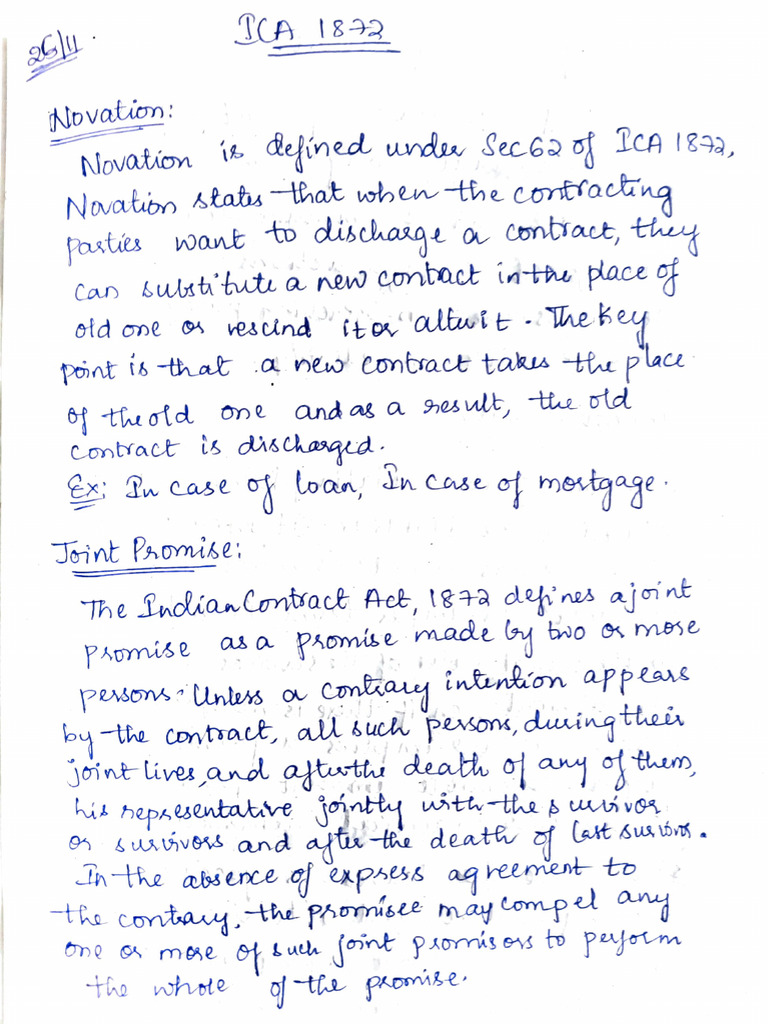 26/11.
ICA 1872
Novation:
Novation is defined under Sec 62 of ICA 1872,
Novation states that when the contracting
parties want to discharge a contract, they
can substitute a new contract in the place of
old one or rescind it or alter it. The key
point is that a new contract takes the place
of the old one and as a result, the old
contract is discharged.
Ex: In case of loan, In case of mortgage.
Joint Promise:
The Indian Contract Act, 1872 defines a joint
promise as a promise made by two or more
persons. Unless a contrary intention appears
by the contract, all such persons, during their
joint lives, and after the death of any of them,
his representative jointly with the survivor
or survivors and after the death of last survivor.
In the absence of express agreement to
the contrary, the promisee may compel any
one or more of such joint promisors to perform
the whole of the promise.